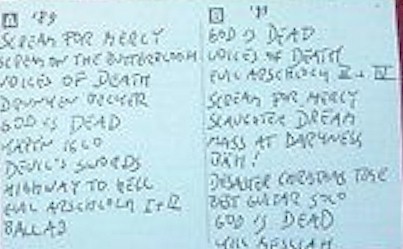 A '89
SCREAM FOR MERCY
SCREAM ON THE
VOICES OF DEATH
DRUNKEN
GOD IS DEAD
MARTIN
DEVIL'S SWORDS
HIGHWAY TO HELL
EVIL ARSCHLOCH I + II
BALLAD
B '89
GOD IS DEAD
VOICES OF DEATH
EVIL ARSCHLOCH III + IV
SCREAM FOR MERCY
SLAUGHTER DREAM
MASS AT DARKNESS
DISASTER CHRISTMAS TIME
BEST GUITAR SOLO
GOD IS DEAD
MESSIAH